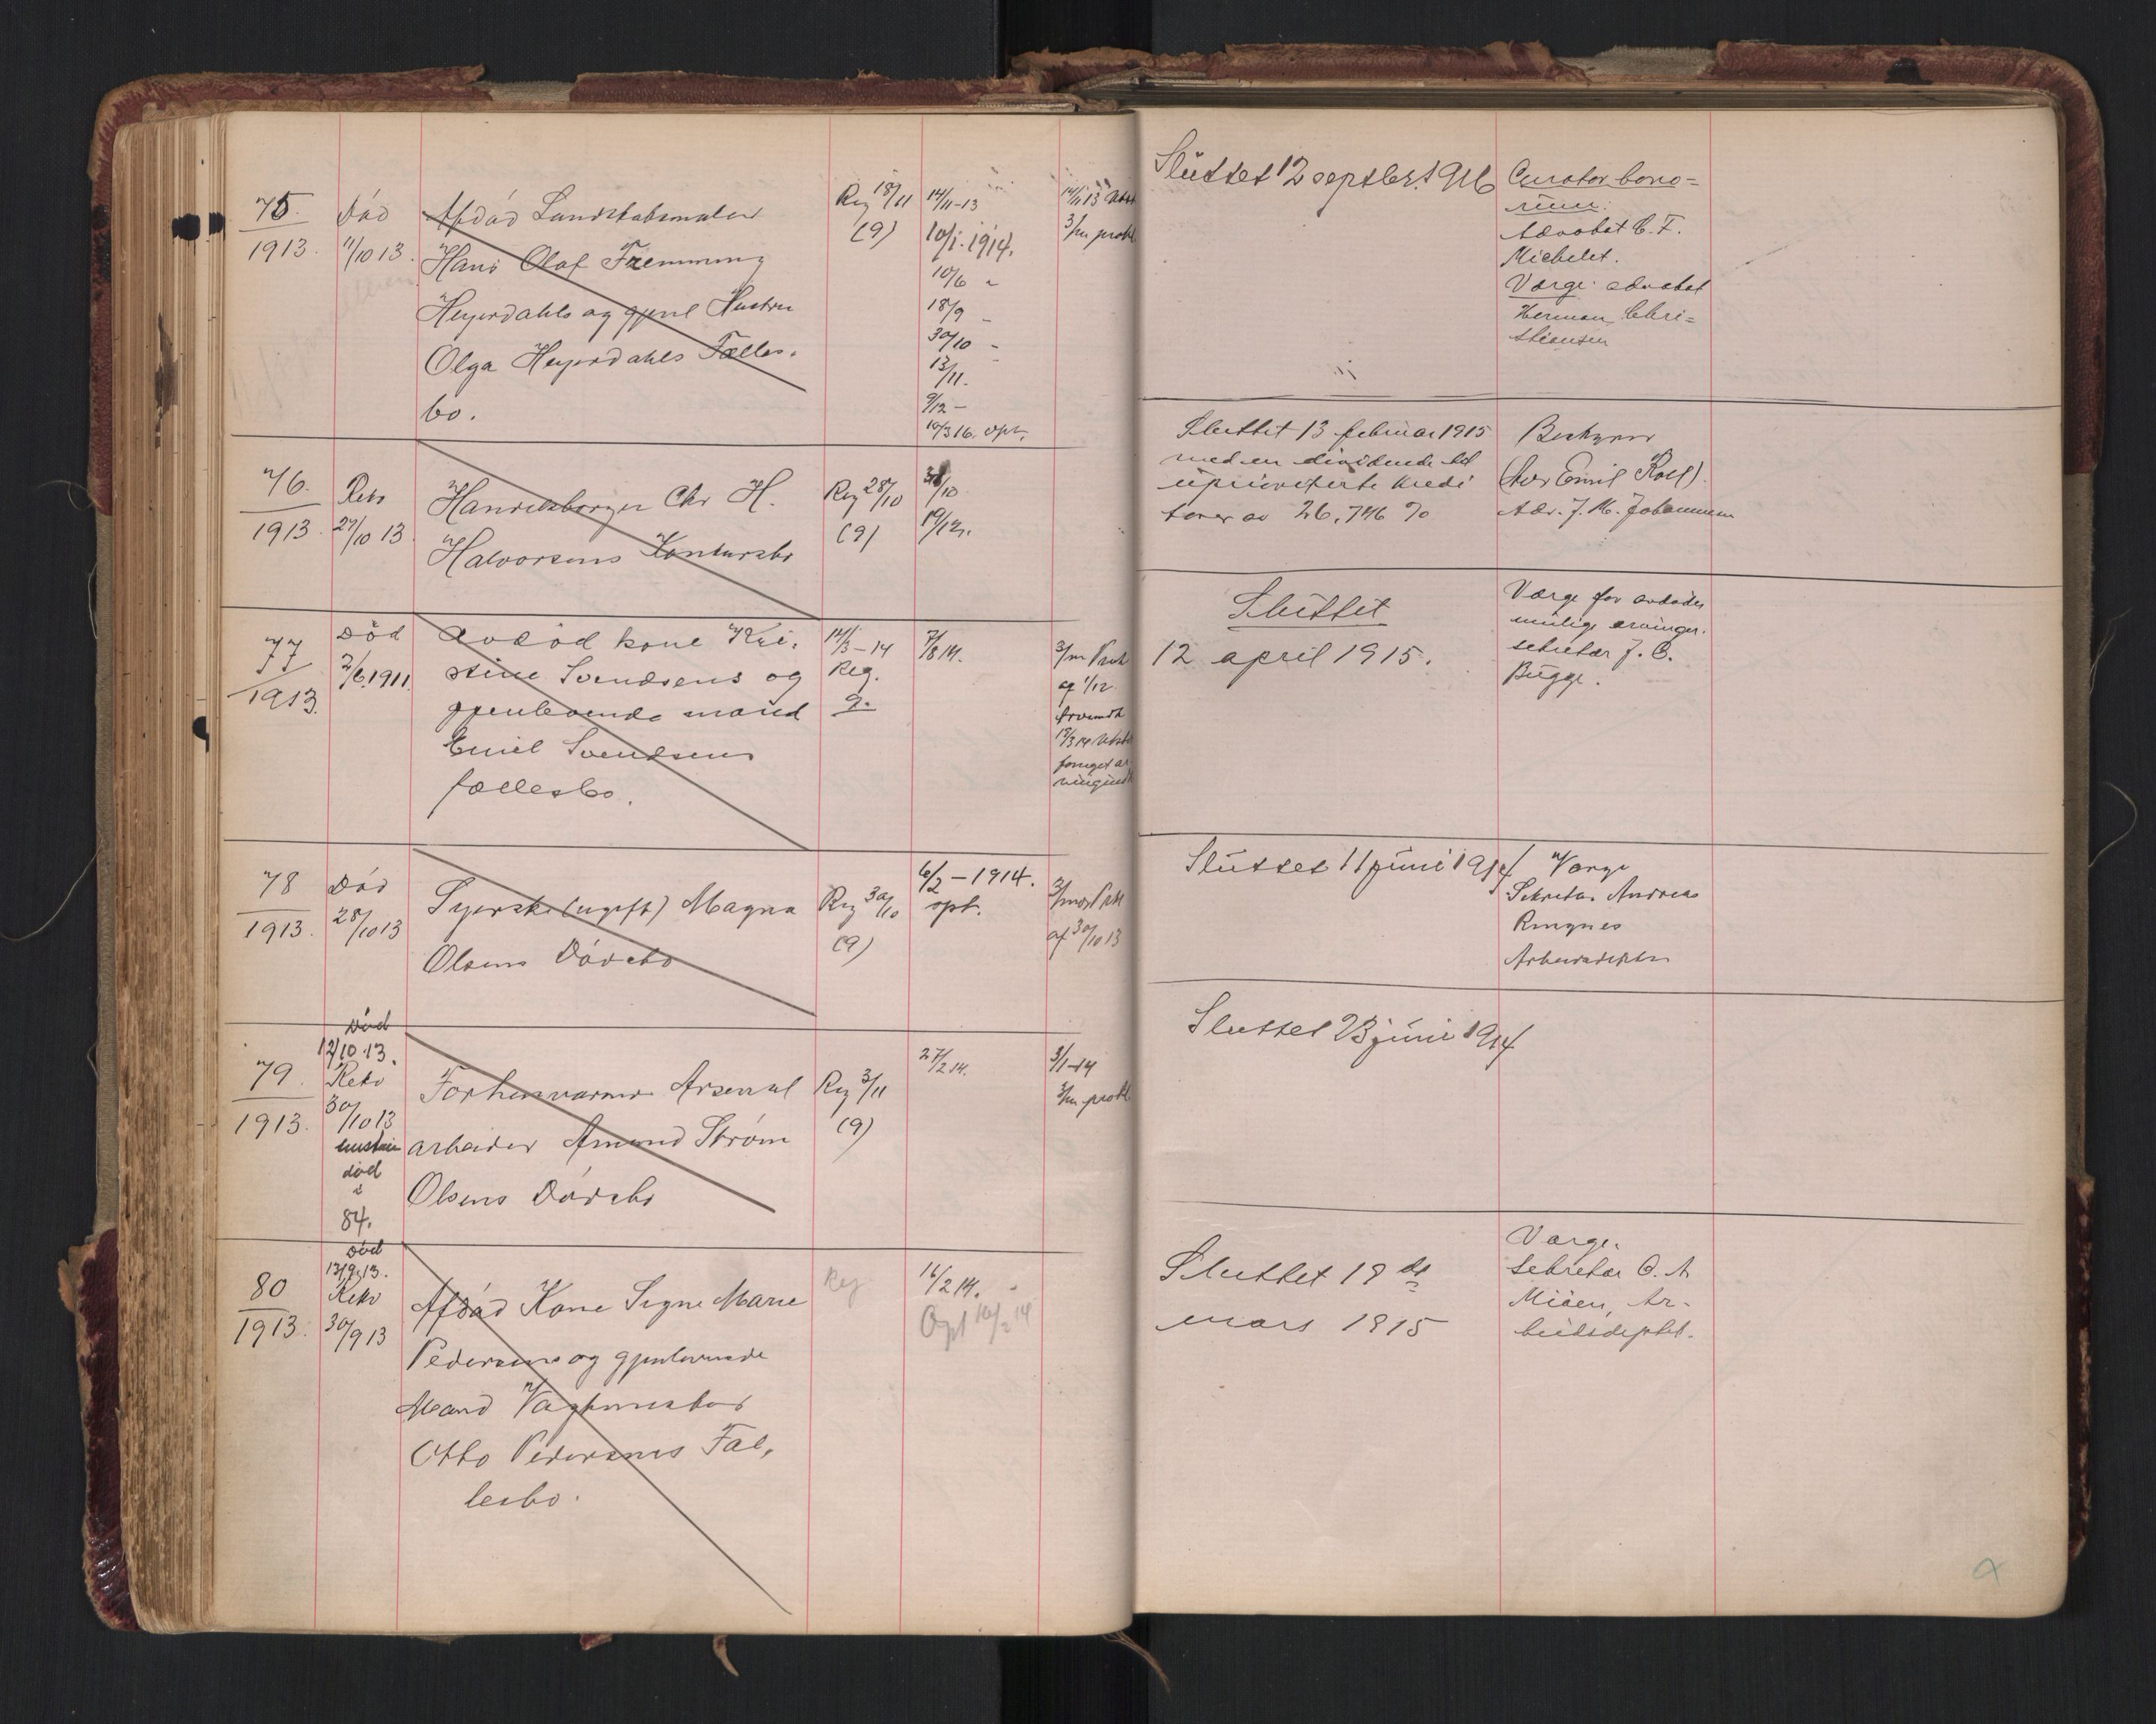 75.
1913.
Död
11/10 13.
Afdöd Landskabsmaler
Hans Olaf Flemming
Heyerdahls og gjenl Hustru
Olga Heyerdahls Fælles-
bo.
Reg 18/11
(9)
14/11-13
10/1. 1914.
10/6 "
18/9 -
30/10 -
13/11.
9/12 -
10/3 16. opt.
14/11 13
3/m prokl
Sluttet 12 septbr. 1916
Curator bono=
rum:
Advokat C. F.
Michelet.
Værge: advokat
Herman Chri=
stiansen
76.
1913
Rekv
27/10 13
Handelsborger Chr H.
Halvorsens Konkursbo
Reg 28/10
(9)
31/10
19/12.
Sluttet 13 februar 1915
med en dividende til
uprioriterte kredi
torer av 26,746 %
Bestyrer
(Adv Emil Roll)
Adv. J. M. Johannesen
77
1913.
Död
2/6 1911.
Avdöd kone Kri-
stine Svendsens og
gjenlevende mand
Emil Svendsens
fællesbo.
14/3-14
Reg.
9.
7/8 14.
3/m Prok
af 1/12
Sluttet
12 april 1915.
Værge for avdödes
mulige arvinger.
sekretær J. C.
Bugge.
78
1913.
Död
28/10 13
Syerske (ugift) Magna
Olsens Dödsbo
Reg 30/10
(9)
6/2 - 1914.
opt.
af 30/10 13
Sluttet 11 juni 1914
Værge
Sekretær Andreas
Ringnes
Arbeidsdeptet
79
1913.
Död
12/10 13.
Rekv
30/10 13
hustru
död
i
84.
Forhenværende Arsenal
arbeider Amund Ström
Olsens Dödsbo
Reg 3/11
(9)
27/2 14.
3/1-14
3/m prokl.
Sluttet 23 juni 1914
80
1913.
Död
13/9 13.
Rekv
30/9 13
Afdöd Kone Signe Marie
Pedersens og gjenlevende
Mand Vagtmester
Otto Pedersens Fæl-
lesbo.
Reg
16/2 14.
Opt 16/2 14
Sluttet 18 de
mars 1915
Værge.
Sekretær O. A
Miöen, Ar-
beidsdeptet.